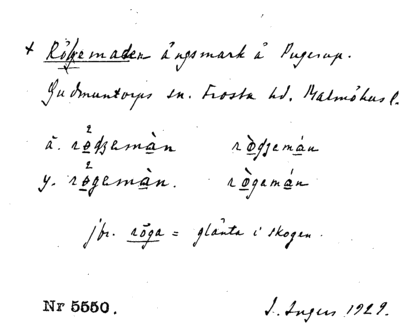 + Rögemaden ängsmark å Pugerup.
Gudmuntorps sn. Frosta hd. Malmöhus l.
ä. rodzemàn ròdzemán
y. rogemàn. rògemán
jfr. röga = glänta i skogen.
Nr 5550. I. Ingers 1929.